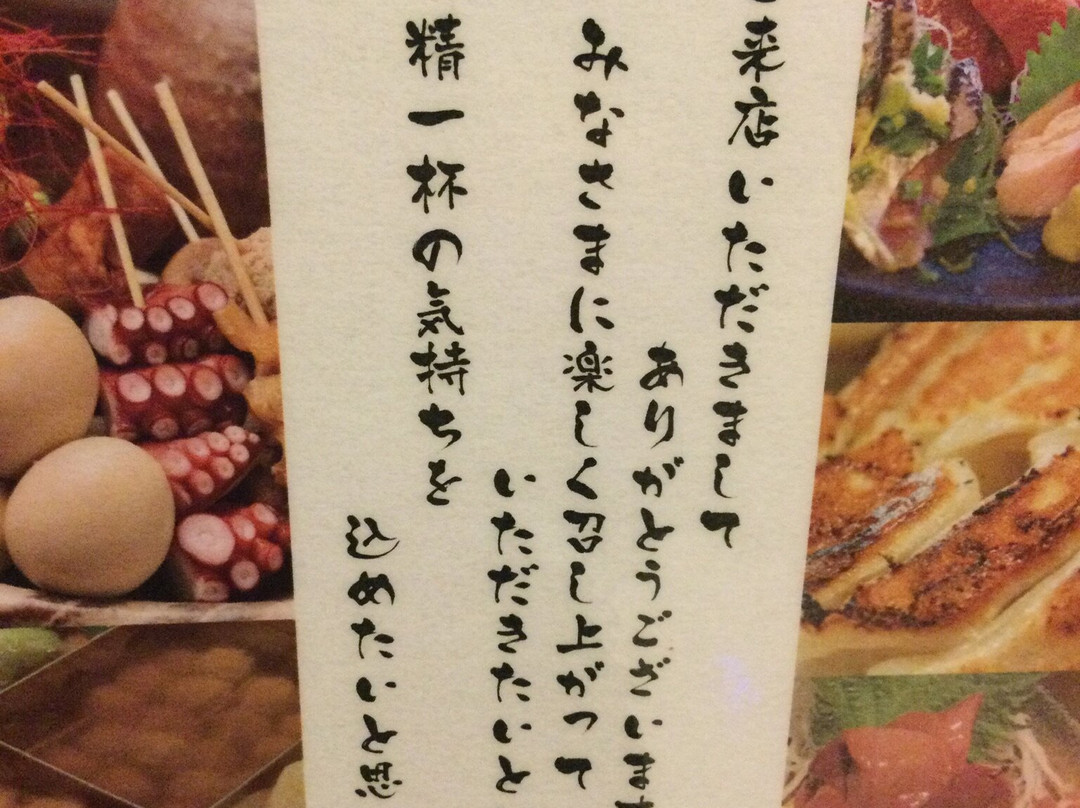 来店いただきまして
ありがとうございます
みなさまに楽しく召し上がって
いただきたいと
精一杯の気持ちを
込めたいと思